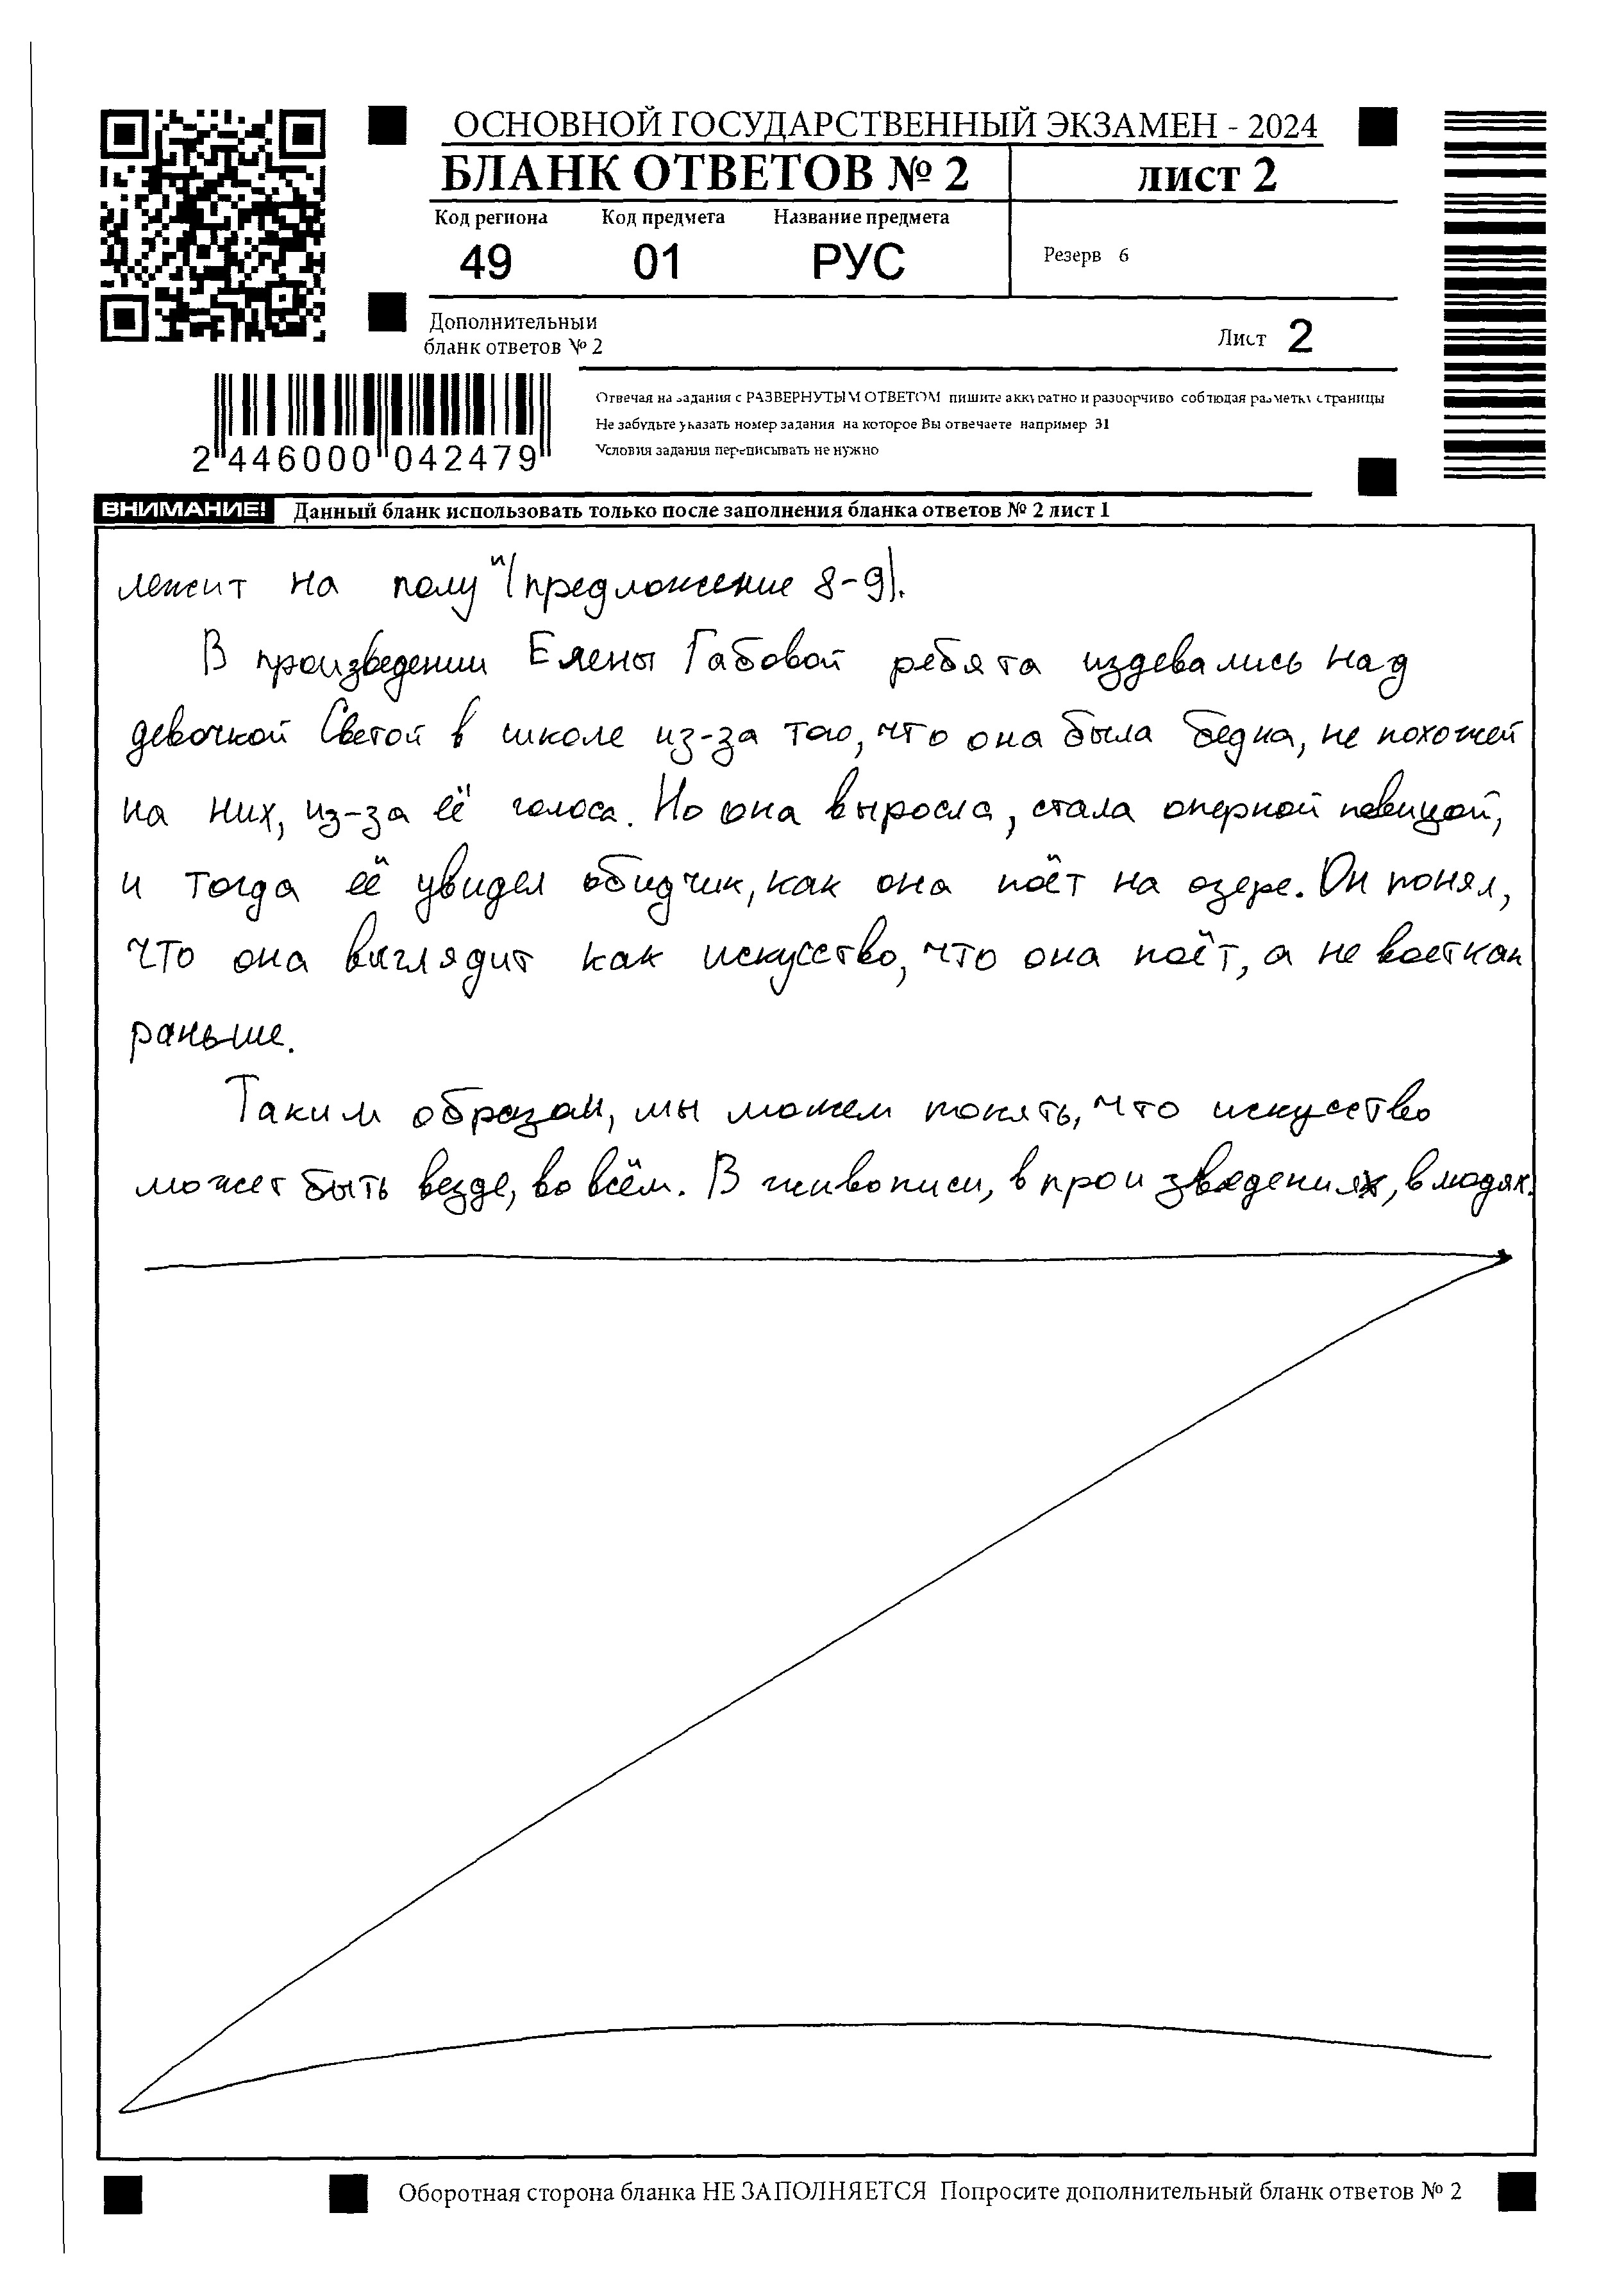 ОСНОВНОЙ ГОСУДАРСТВЕННЫЙ ЭКЗАМЕН - 2024
БЛАНК ОТВЕТОВ № 2 лист 2
Код региона Код предмета Название предмета
49 01 РУС
Резерв 6
Дополнительный
бланк ответов № 2
Лист 2
2 446000 042479
Отвечая на задания с РАЗВЕРНУТЫМ ОТВЕТОМ пишите аккуратно и разборчиво соблюдая разметку страницы
Не забудьте указать номер задания на которое Вы отвечаете например 31
Условия задания переписывать не нужно
ВНИМАНИЕ! Данный бланк использовать только после заполнения бланка ответов № 2 лист 1
лежит на полу" (предложение 8-9).
В произведении Елены Габовой ребята издевались над
девочкой Светой в школе из-за тао, что она была бедна, не похожей
на них, из-за её голоса. Но она выросла, стала оперной певицой,
и тогда её увидел обидчик, как она поёт на озере. Он понял,
что она выглядит как искусство, что она поёт, а не воет как
раньше.
Таким образом, мы можем понять, что искусство
может быть везде, во всём. В живописи, в произведениях, в людях.
Оборотная сторона бланка НЕ ЗАПОЛНЯЕТСЯ Попросите дополнительный бланк ответов № 2